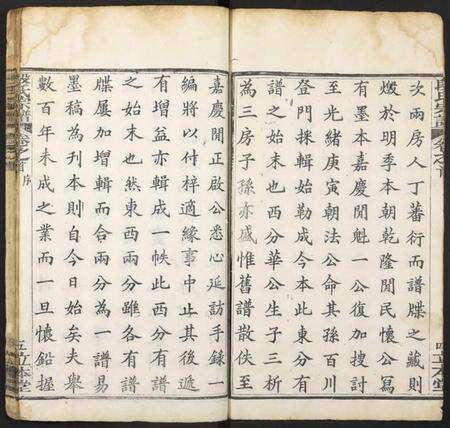 次兩房人丁蕃衍而譜牒之藏則
燬於明季本朝乾隆間民懷公寫
有墨本嘉慶間魁一公復加搜討
至光緒庚寅朝法公命其孫百川
登門採輯始勒成今本此東分有
譜之始末也西分華公生子三析
為三房子孫亦盛惟舊譜散佚至
嘉慶間正啟公悉心延訪手錄一
編將以付梓適緣事中止其後遞
有增益亦輯成一帙此西分有譜
之始末也然東西兩分雖各有譜
牒屢加增輯而合兩分為一譜易
墨稿為刊本則自今日始矣夫舉
數百年未成之業而一旦懷鉛握
卷之首 序 五立本堂